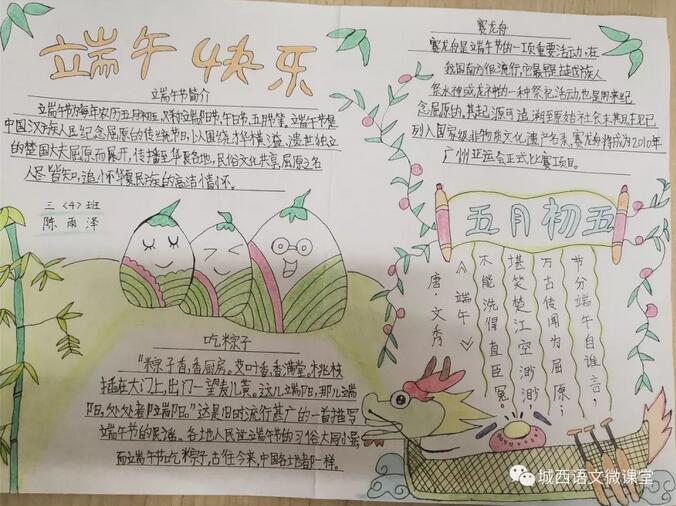 端午快乐
端午节简介
端午节为每年农历五月初五,又称端阳节,午日节、五月节等。端午节是
中国汉族人民纪念屈原的传统节日,以围绕才华横溢、遗世独
立的楚国大夫屈原而展开,传播至华夏各地,民俗文化共享,屈原之名
人尽皆知,追怀华夏民族的高洁情怀。
三〈4〉班
陈雨泽
吃粽子
“粽子香,香厨房。艾叶香,香满堂。桃枝
插在大门上,出门一望麦儿黄。这儿端阳,那儿端
阳,处处都端阳。”这是旧时流行甚广的一首描写
端午节的民谣。各地人民过端午节的习俗大同小异
而端午节吃粽子,古往今来,中国各地都一样。
赛龙舟
赛龙舟是端午节的一项重要活动,在
我国南方很流行,它最早是古越族人
祭水神或龙神的一种祭祀活动也是用来纪
念屈原的,其起源可追溯至原始社会末期,现已
列入国家级非物质文化遗产名录,赛龙舟将成为2010年
广州亚运会正式比赛项目。
五月初五
节分端午自谁言;
万古传闻为屈原;
堪笑楚江空渺渺
不能洗得直臣冤。
《端午》
唐·文秀
城西语文微课堂